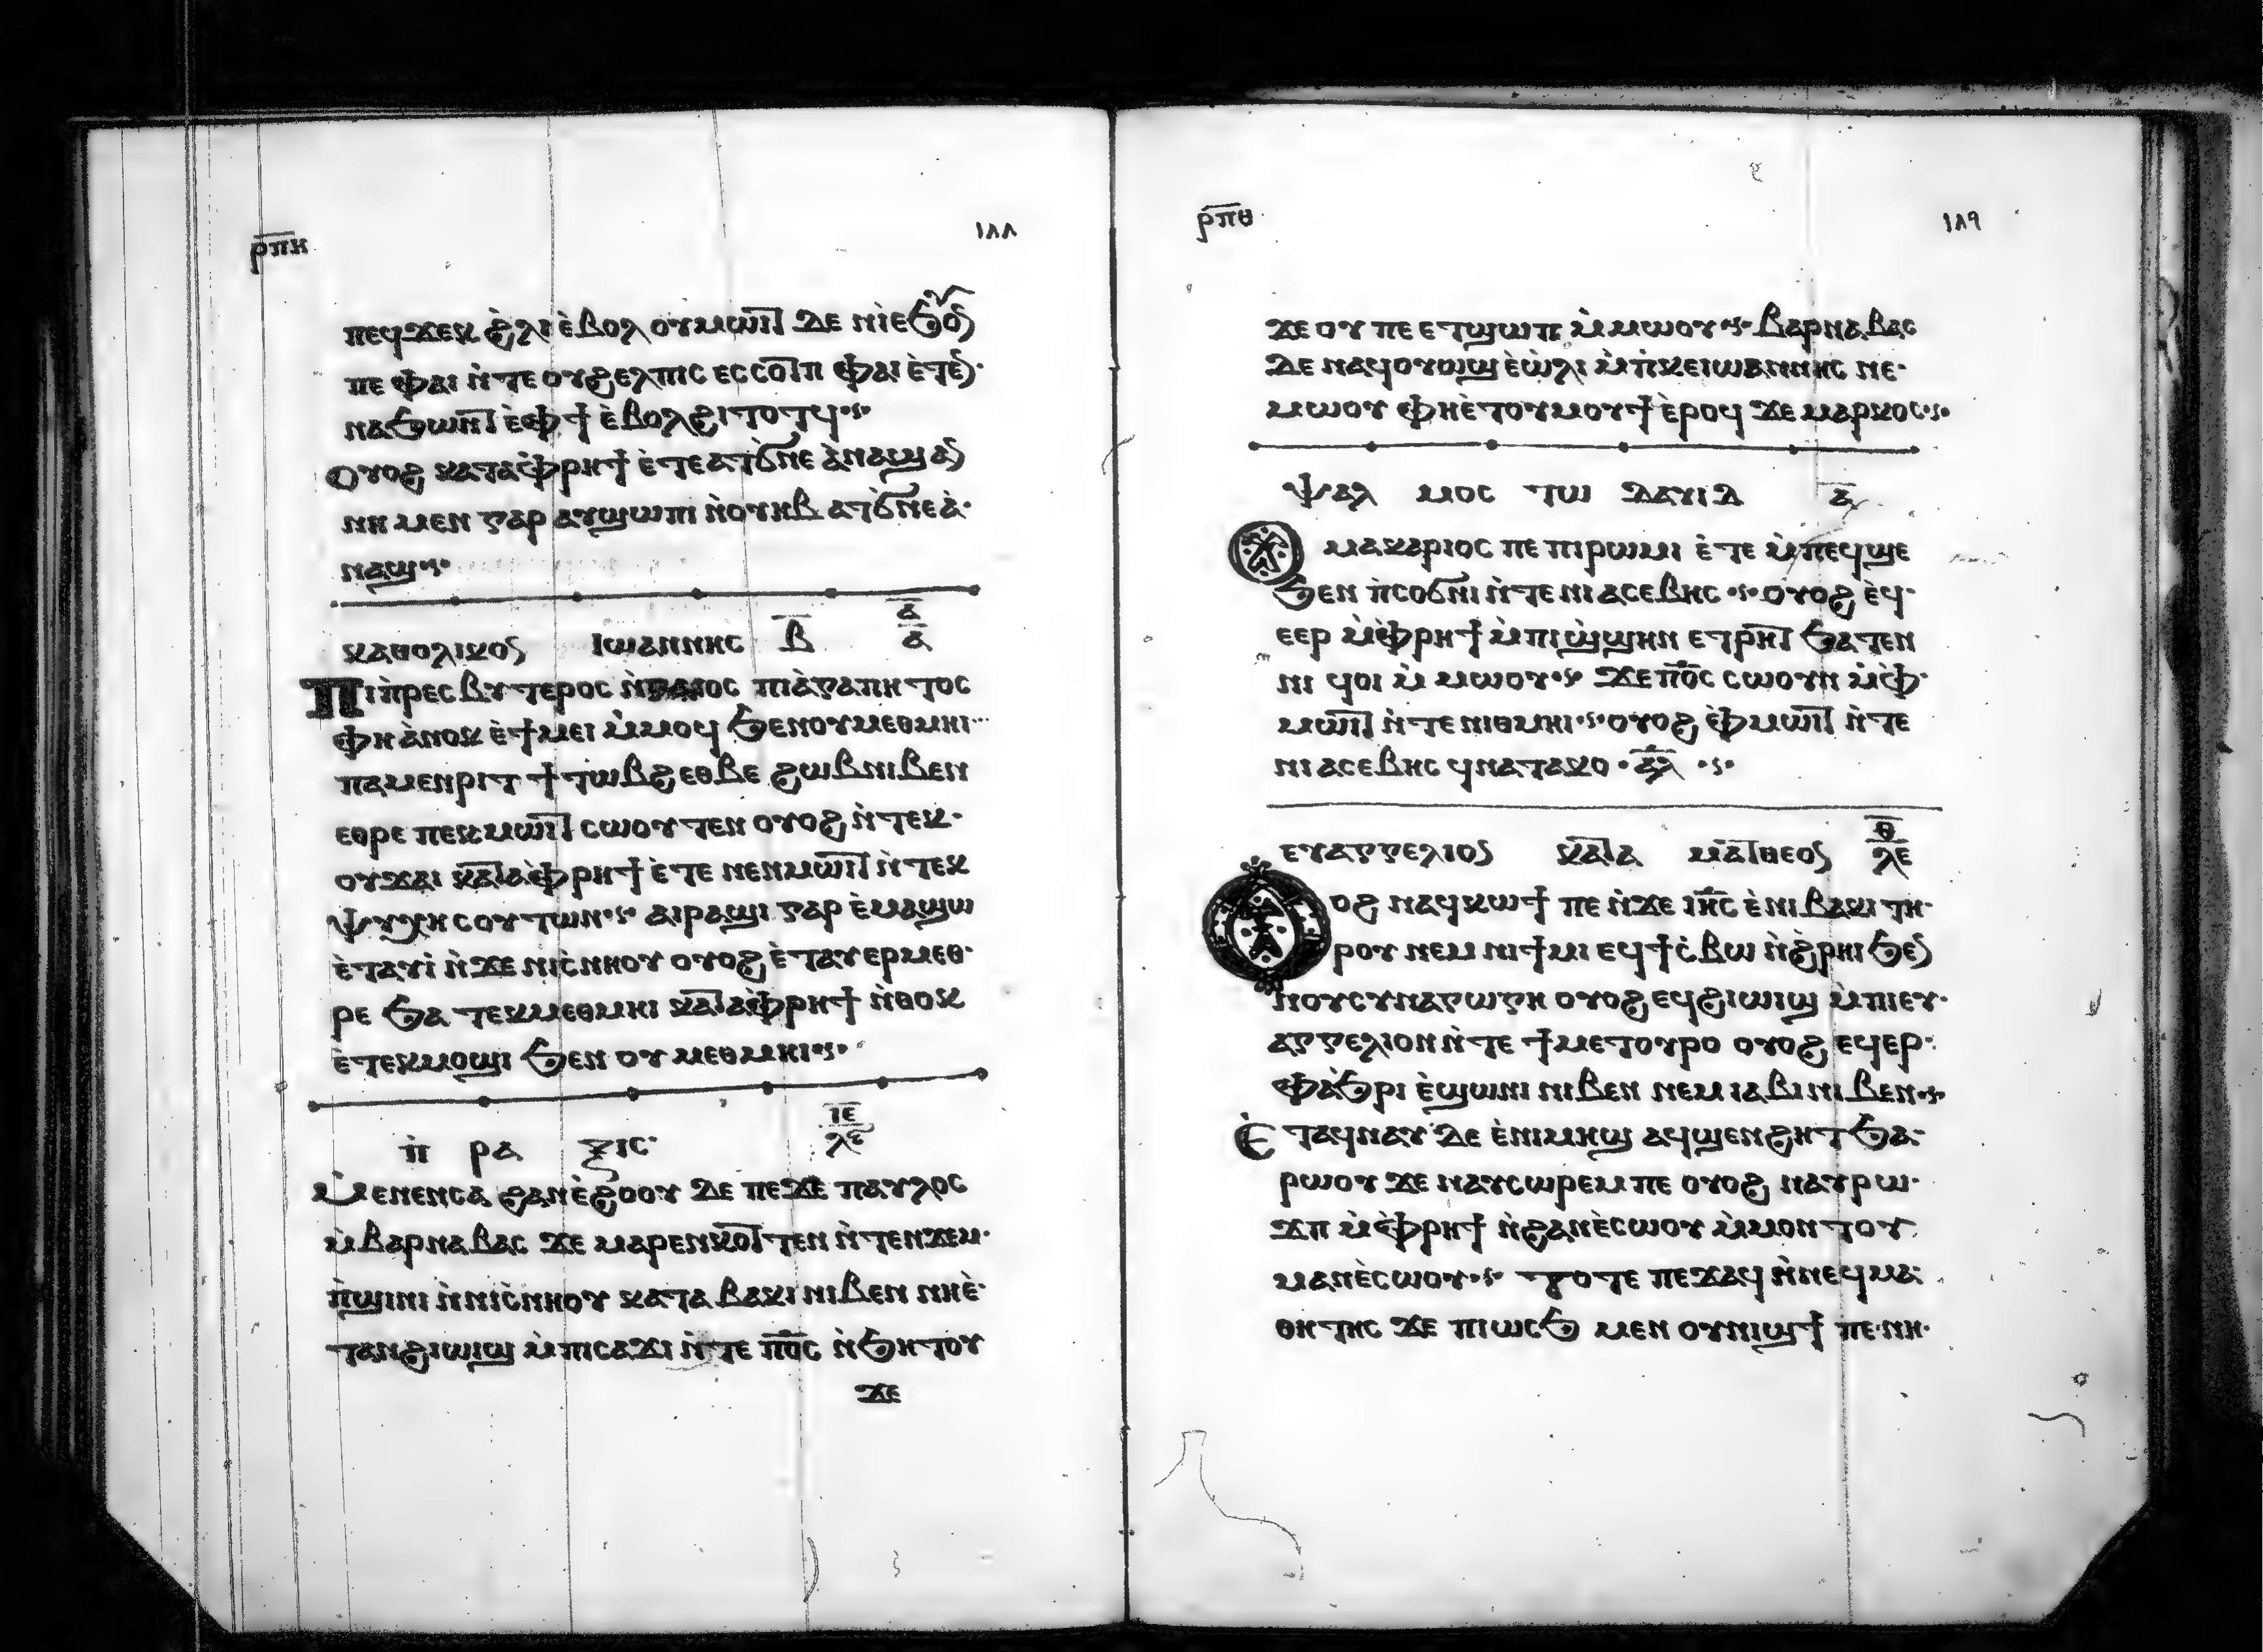 ⲣ̅ⲡ̅ⲏ ١٨٨
ⲡⲉϥϫⲉⲕ ϩⲗⲓ ⲉ̀ⲃⲟⲗ ⲟⲩⲙⲱⲓⲧ ⲇⲉ ⲛⲓ̀ⲉϧⲟⲩⲛ
ⲡⲉ ⲫⲁⲓ ⲛ̀ⲧⲉ ⲟⲩϩⲉⲗⲡⲓⲥ ⲉⲥⲥⲟⲧⲡ ⲫⲁⲓ ⲉ̀ⲧⲉⲛ·
ⲛⲁϧⲱⲛⲧ ⲉ̀ⲫϯ ⲉ̀ⲃⲟⲗϩⲓⲧⲟⲧϥ
ⲟⲩⲟϩ ⲕⲁⲧⲁⲫ̀ⲣⲏϯ ⲉ̀ⲧⲉ ⲁⲧϭⲛⲉ ⲁ̀ⲛⲁϣ ⲁⲛ
ⲛⲏ ⲙⲉⲛ ⲅⲁⲣ ⲁⲩϣⲱⲡⲓ ⲛ̀ⲟⲩⲏⲃ ⲁⲧϭⲛⲉⲁ̀·
ⲛⲁϣ
ⲕⲁⲑⲟⲗⲓⲕⲟⲛ ⲓⲱⲁⲛⲛⲏⲥ ⲃ̅ ⲁ̅ ⲁ̅
ⲡⲓⲡ̀ⲣⲉⲥⲃⲩⲧⲉⲣⲟⲥ ⲛ̀ⲅⲁⲓⲟⲥ ⲡⲓⲁ̀ⲅⲁⲡⲏⲧⲟⲥ
ⲫⲏ ⲁ̀ⲛⲟⲕ ⲉ̀ϯⲙⲉⲓ ⲙ̀ⲙⲟϥ ϧⲉⲛ ⲟⲩⲙⲉⲑⲙⲏⲓ
ⲡⲁⲙⲉⲛⲣⲓⲧ ϯⲧⲱⲃϩ ⲉⲑⲃⲉ ϩⲱⲃ ⲛⲓⲃⲉⲛ
ⲉⲑⲣⲉ ⲡⲉⲕⲙⲱⲓⲧ ⲥⲱⲟⲩⲧⲉⲛ ⲟⲩⲟϩ ⲛ̀ⲧⲉⲕ·
ⲟⲩϫⲁⲓ ⲕⲁⲧⲁⲫ̀ⲣⲏϯ ⲉ̀ⲧⲉ ⲛⲉⲛⲙⲱⲓⲧ ⲛ̀ⲧⲉⲕ
ⲯⲩⲭⲏ ⲥⲟⲩⲧⲱⲛ ⲁⲓⲣⲁϣⲓ ⲅⲁⲣ ⲉ̀ⲙⲁϣⲱ
ⲉ̀ⲧⲁⲩⲓ̀ ⲛ̀ϫⲉ ⲛⲓⲥ̀ⲛⲏⲟⲩ ⲟⲩⲟϩ ⲉ̀ⲧⲁⲩⲉⲣⲙⲉⲑ·
ⲣⲉ ϧⲁ ⲧⲉⲕⲙⲉⲑⲙⲏⲓ ⲕⲁⲧⲁⲫ̀ⲣⲏϯ ⲛ̀ⲑⲟⲕ
ⲉ̀ⲧⲉⲕⲙⲟϣⲓ ϧⲉⲛ ⲟⲩⲙⲉⲑⲙⲏⲓ
ⲡ̀ⲣⲁⲝⲓⲥ ⲓ̅ⲉ̅ ⲗ̅ⲉ̅
ⲙⲉⲛⲉⲛⲥⲁ ϩⲁⲛⲉ̀ϩⲟⲟⲩ ⲇⲉ ⲡⲉϫⲉ ⲡⲁⲩⲗⲟⲥ
ⲙ̀ⲃⲁⲣⲛⲁⲃⲁⲥ ϫⲉ ⲙⲁⲣⲉⲛⲕⲟⲧⲧⲉⲛ ⲛ̀ⲧⲉⲛϫⲉⲙ·
ⲡ̀ϣⲓⲛⲓ ⲛ̀ⲛⲓⲥ̀ⲛⲏⲟⲩ ⲕⲁⲧⲁ ⲃⲁⲕⲓ ⲛⲓⲃⲉⲛ ⲛⲏⲉ̀·
ⲧⲁⲛϩⲓⲱⲓϣ ⲙ̀ⲡⲓⲥⲁϫⲓ ⲛ̀ⲧⲉ ⲡ̅ⲟ̅ⲥ̅ ⲛ̀ϧⲏⲧⲟⲩ
ϫⲉ
ⲣ̅ⲡ̅ⲑ ١٨٩
ϫⲉ ⲟⲩ ⲡⲉ ⲉⲧϣⲱⲡ ⲙ̀ⲙⲱⲟⲩ ⲃⲁⲣⲛⲁⲃⲁⲥ
ⲇⲉ ⲛⲁϥⲟⲩⲱϣ ⲉ̀ⲱ̀ⲗⲓ ⲙ̀ⲡ̀ⲕⲉⲓⲱⲁⲛⲛⲏⲥ ⲛⲉ·
ⲙⲱⲟⲩ ⲫⲏⲉ̀ⲧⲟⲩⲙⲟⲩϯ ⲉ̀ⲣⲟϥ ϫⲉ ⲙⲁⲣⲕⲟⲥ
ⲯⲁⲗⲙⲟⲥ ⲧⲱ ⲇⲁⲩⲓⲇ ⲁ̅
ⲱ̀ ⲙⲁⲕⲁⲣⲓⲟⲥ ⲡⲉ ⲡⲓⲣⲱⲙⲓ ⲉ̀ⲧⲉ ⲙ̀ⲡⲉϥϣⲉ
ϧⲉⲛ ⲡ̀ⲥⲟϭⲛⲓ ⲛ̀ⲧⲉ ⲛⲓⲁⲥⲉⲃⲏⲥ ⲟⲩⲟϩ ⲉ̀ϥ·
ⲉⲉⲣ ⲙ̀ⲫ̀ⲣⲏϯ ⲙ̀ⲡⲓϣ̀ϣⲏⲛ ⲉⲧⲣⲏⲧ ϧⲁⲧⲉⲛ
ⲛⲓ ϥⲟⲓ ⲙ̀ⲙⲱⲟⲩ ϫⲉ ⲡ̅ⲟ̅ⲥ̅ ⲥⲱⲟⲩⲛ ⲙ̀ⲫ̀·
ⲙⲱⲓⲧ ⲛ̀ⲧⲉ ⲛⲓⲑⲙⲏⲓ ⲟⲩⲟϩ ⲉ̀ⲫⲙⲱⲓⲧ ⲛ̀ⲧⲉ
ⲛⲓⲁⲥⲉⲃⲏⲥ ϥⲛⲁⲧⲁⲕⲟ ⲁ̅ⲗ̅
ⲉⲩⲁⲅⲅⲉⲗⲓⲟⲛ ⲕⲁⲧⲁ ⲙⲁⲧⲑⲉⲟⲛ ⲑ̅ ⲗ̅ⲉ̅
ⲟⲩⲟϩ ⲛⲁϥⲕⲱϯ ⲡⲉ ⲛ̀ϫⲉ ⲓⲏ̅ⲥ̅ ⲉ̀ⲛⲓⲃⲁⲕⲓ ⲧⲏ·
ⲣⲟⲩ ⲛⲉⲙ ⲛⲓϯⲙⲓ ⲉϥϯⲥ̀ⲃⲱ ⲛ̀ϩ̀ⲣⲏⲓ ϧⲉⲛ
ⲛⲟⲩⲥⲩⲛⲁⲅⲱⲅⲏ ⲟⲩⲟϩ ⲉϥϩⲓⲱⲓϣ ⲙ̀ⲡⲓⲉⲩ·
ⲁⲅⲅⲉⲗⲓⲟⲛ ⲛ̀ⲧⲉ ϯⲙⲉⲧⲟⲩⲣⲟ ⲟⲩⲟϩ ⲉϥⲉⲣ·
ⲫⲁϧⲣⲓ ⲉ̀ϣⲱⲛⲓ ⲛⲓⲃⲉⲛ ⲛⲉⲙ ⲓⲁⲃⲓ ⲛⲓⲃⲉⲛ
ⲉ̀ⲧⲁϥⲛⲁⲩ ⲇⲉ ⲉ̀ⲛⲓⲙⲏϣ ⲁϥϣⲉⲛϩⲏⲧ ϧⲁ·
ⲣⲱⲟⲩ ϫⲉ ⲛⲁⲩⲥⲱⲣⲉⲙ ⲡⲉ ⲟⲩⲟϩ ⲛⲁⲩⲣⲱ·
ϫⲡ ⲙ̀ⲫ̀ⲣⲏϯ ⲛ̀ϩⲁⲛⲉ̀ⲥⲱⲟⲩ ⲙ̀ⲙⲟⲛⲧⲟⲩ
ⲙⲁⲛⲉ̀ⲥⲱⲟⲩ ⲧⲟⲧⲉ ⲡⲉϫⲁϥ ⲛ̀ⲛⲉϥⲙⲁ·
ⲑⲏⲧⲏⲥ ϫⲉ ⲡⲓⲱⲥϧ ⲙⲉⲛ ⲟⲩⲛⲓϣϯ ⲡⲉ ⲛⲓ·